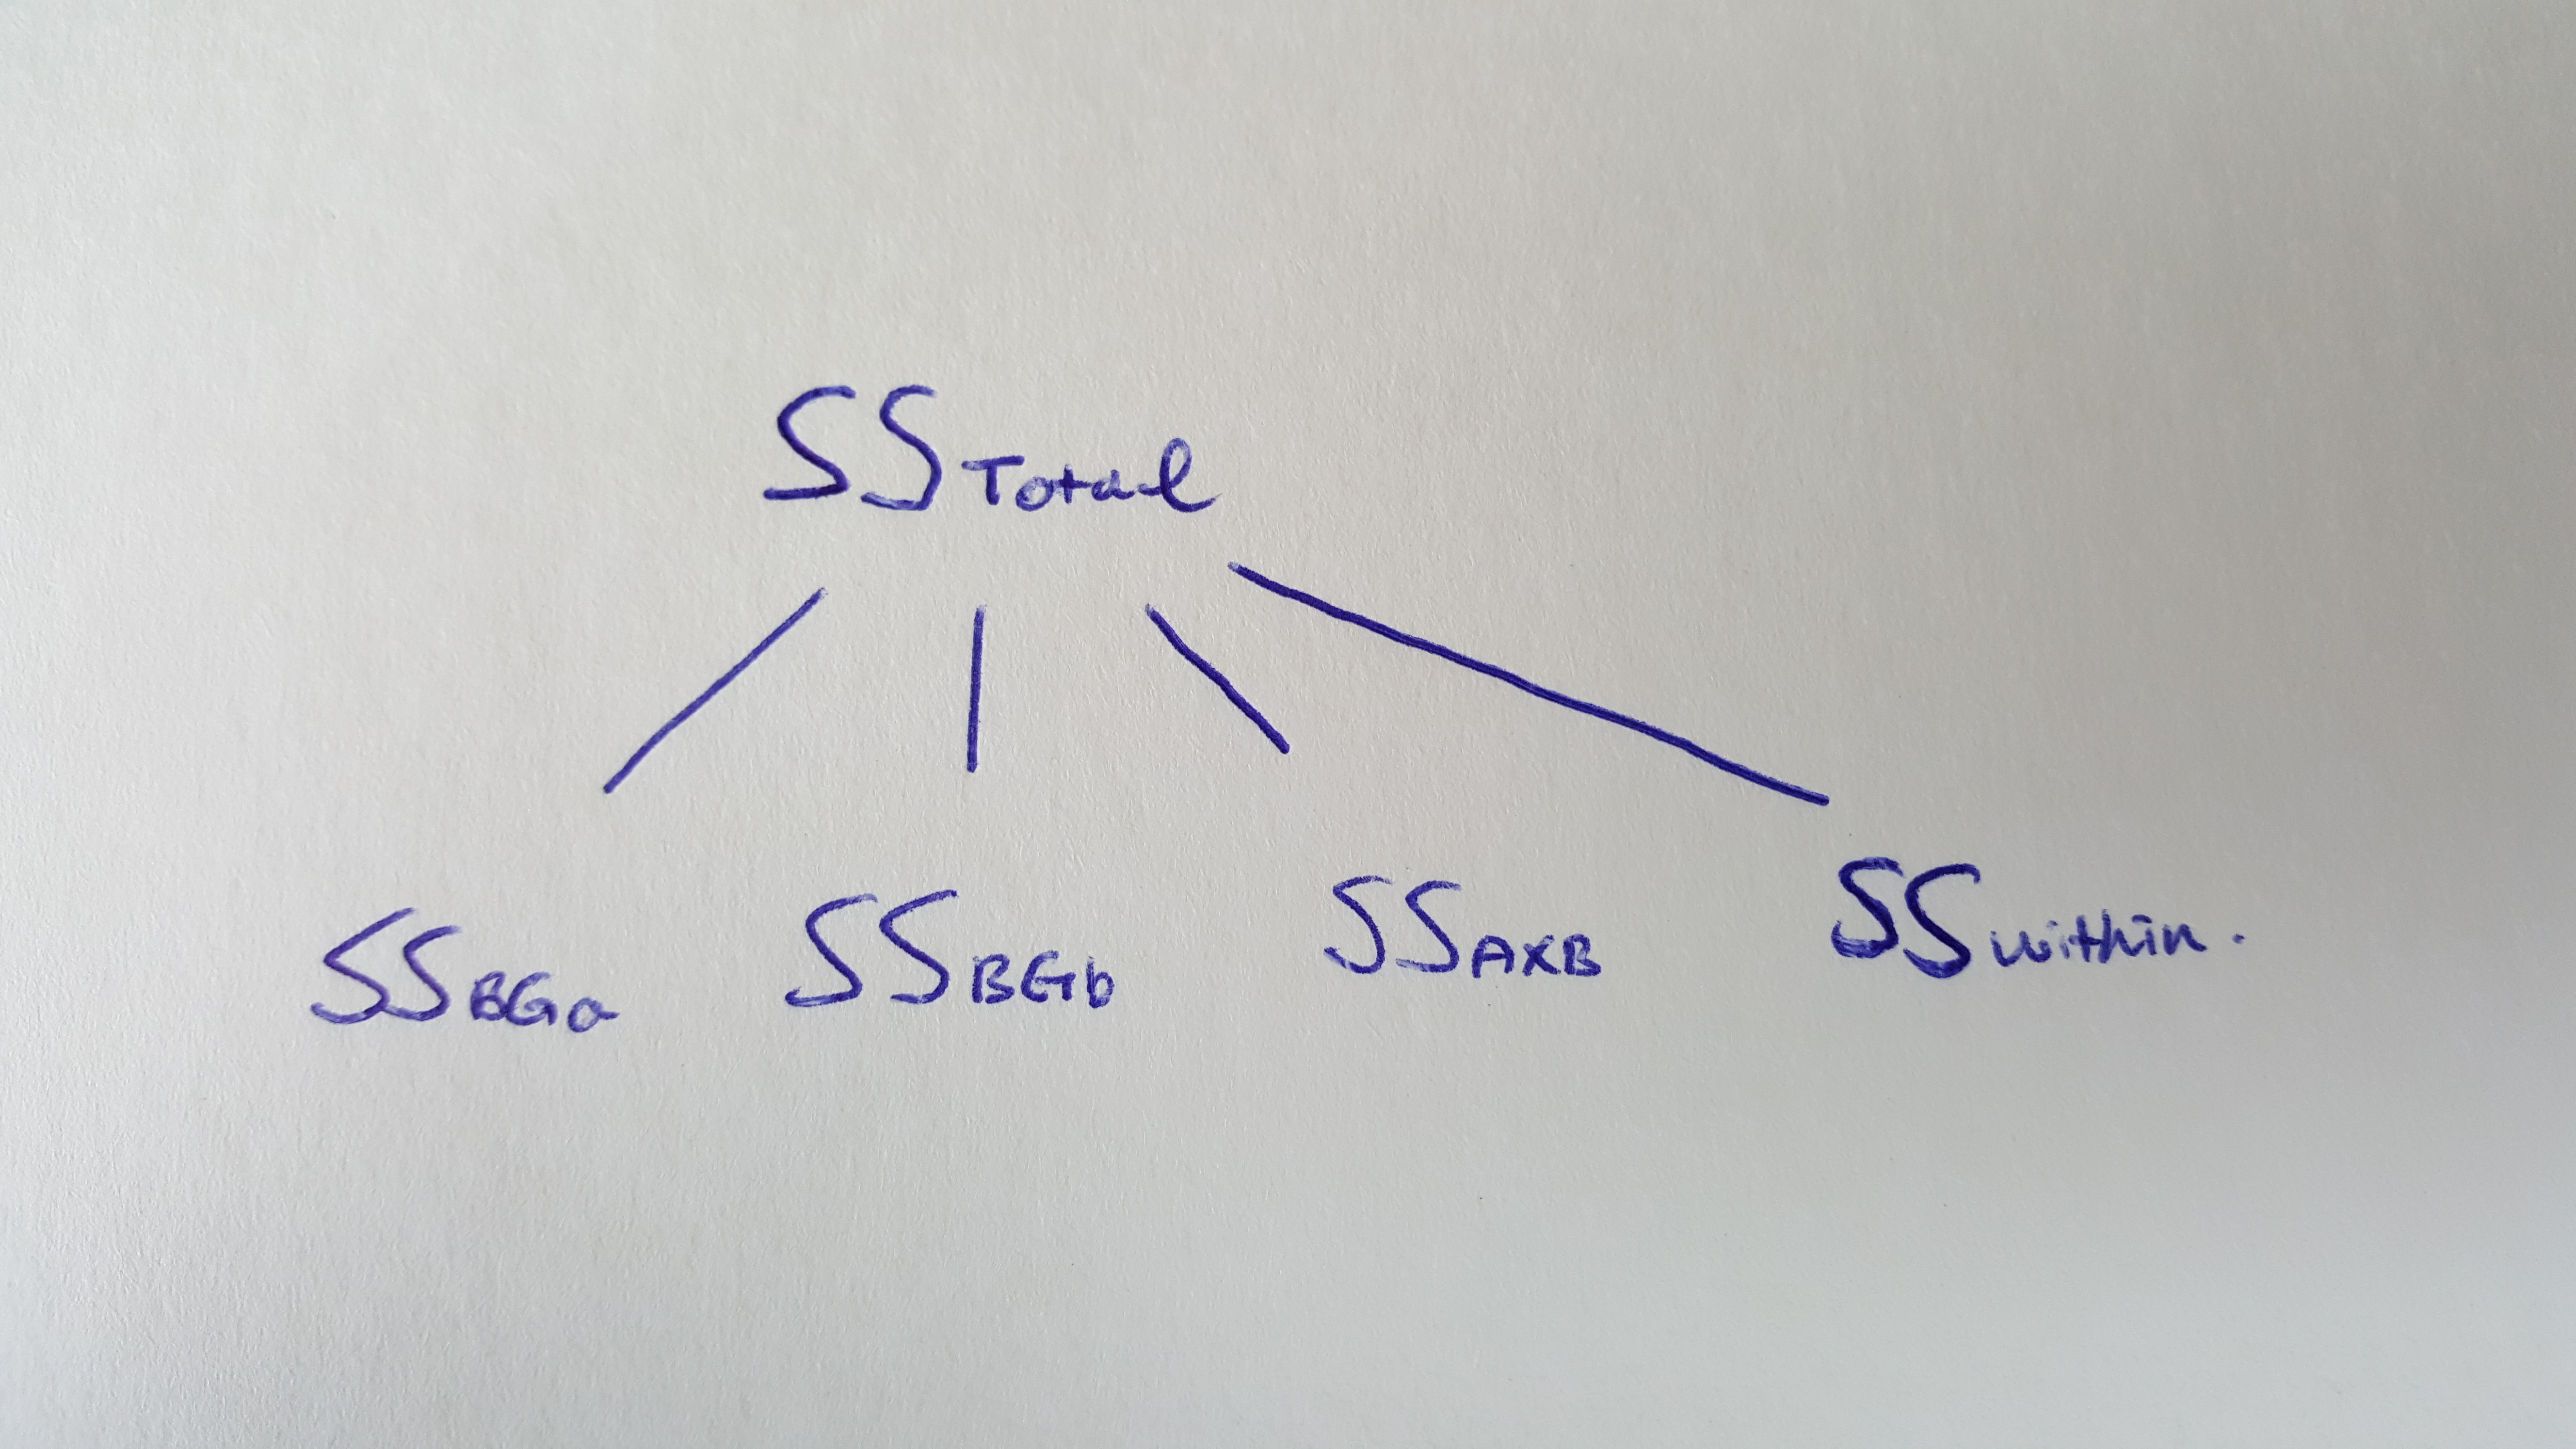 SSTotal
SSBGa SSBGb SSAXB SSwithin.